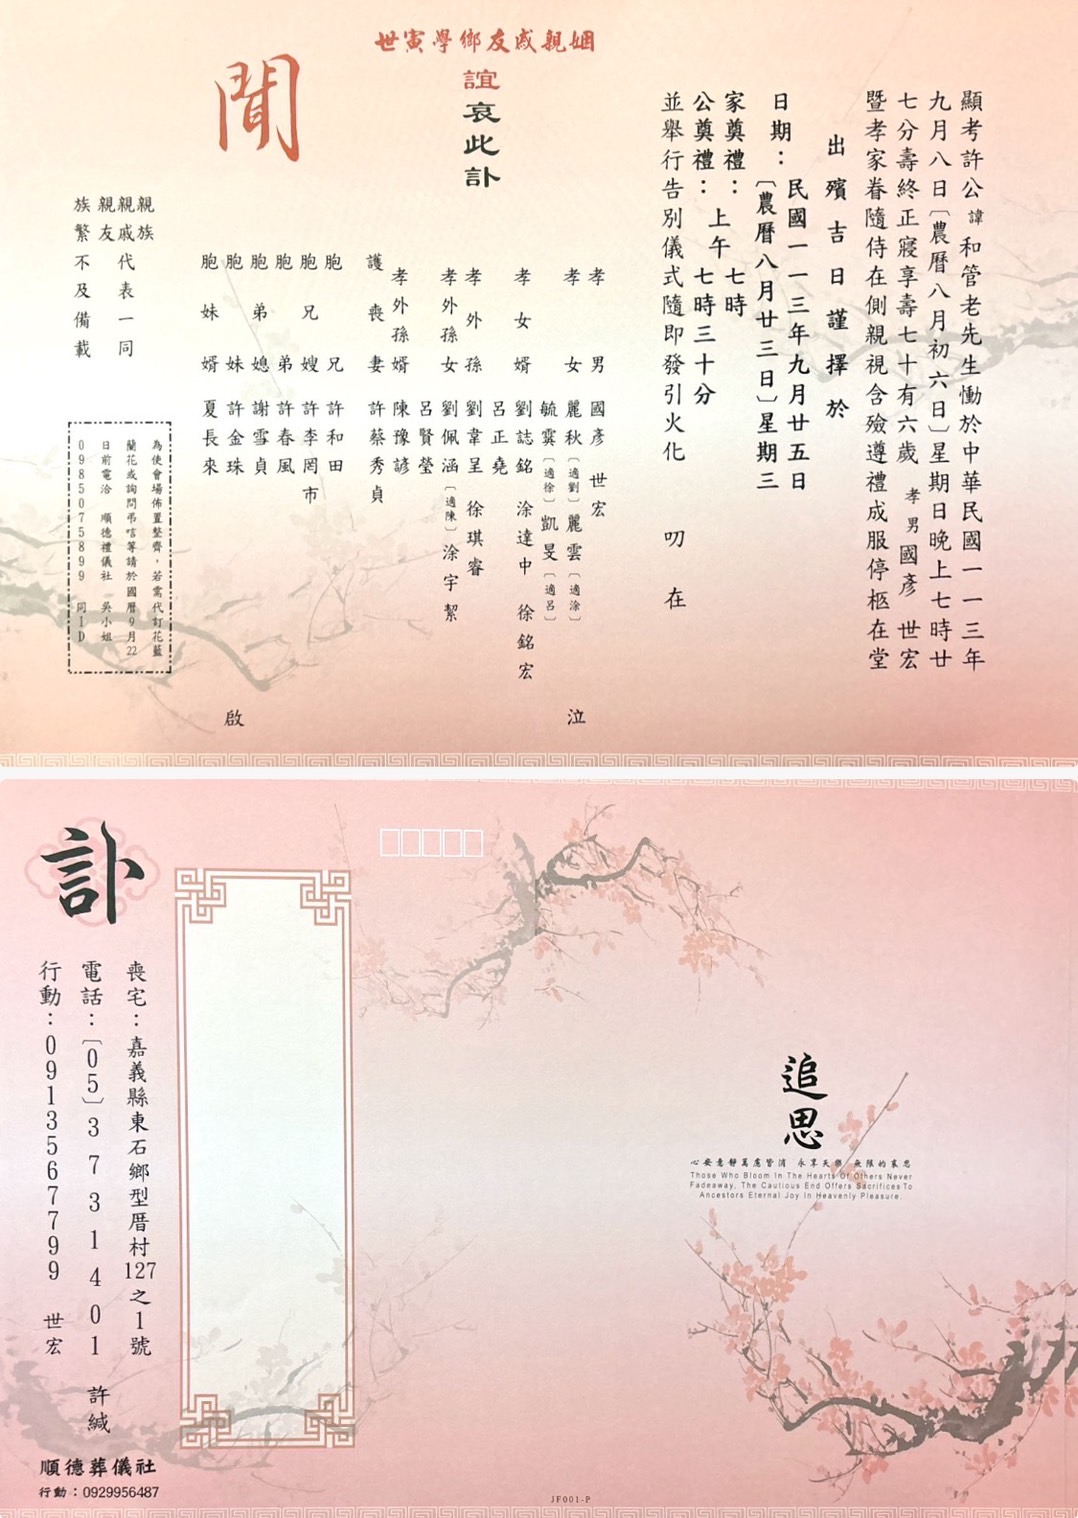 顯考許公諱和管老先生慟於中華民國一一三年
九月八日〔農曆八月初六日〕星期日晚上七時廿
七分壽終正寢享壽七十有六歲 孝男國彥 世宏
暨孝家眷隨侍在側親視含殮遵禮成服停柩在堂
出殯吉日謹擇於
日期：民國一一三年九月廿五日
〔農曆八月廿三日〕星期三
家奠禮：上午七時
公奠禮：七時三十分
並舉行告別儀式隨即發引火化 叨在
姻親戚友鄉學寅世
誼哀此訃
聞
孝男 國彥 世宏
孝女 麗秋〔適劉〕麗雲〔適涂〕
毓霙〔適徐〕凱旻〔適呂〕
孝女婿 劉誌銘 涂達中 徐銘宏
呂正堯
孝外孫 劉韋呈 徐琪睿
孝外孫女 劉佩涵〔適陳〕涂宇絜
呂賢瑩
孝外孫婿 陳豫諺
護喪妻 許蔡秀貞
泣
胞兄 許和田
胞兄嫂 許李罔市
胞弟 許春風
胞弟媳 謝雪貞
胞妹 許金珠
胞妹婿 夏長來
啟
親族
親戚代表一同
親友
族繁不及備載
為使會場佈置整齊，若需代訂花籃
蘭花或詢問弔唁等請於國曆9月22
日前電洽 順德禮儀社 吳小姐
0985075899 同ID
訃
喪宅：嘉義縣東石鄉型厝村127之1號
電話：〔05〕3731401 許緘
行動：0913567799 世宏
順德葬儀社
行動：0929956487
追思
心安意靜萬慮皆消 永享天樂 無限的哀思
Those Who Bloom In The Hearts Of Others Never
Fadeaway, The Cautious End Offers Sacrifices To
Ancestors Eternal Joy In Heavenly Pleasure.
JF001-P